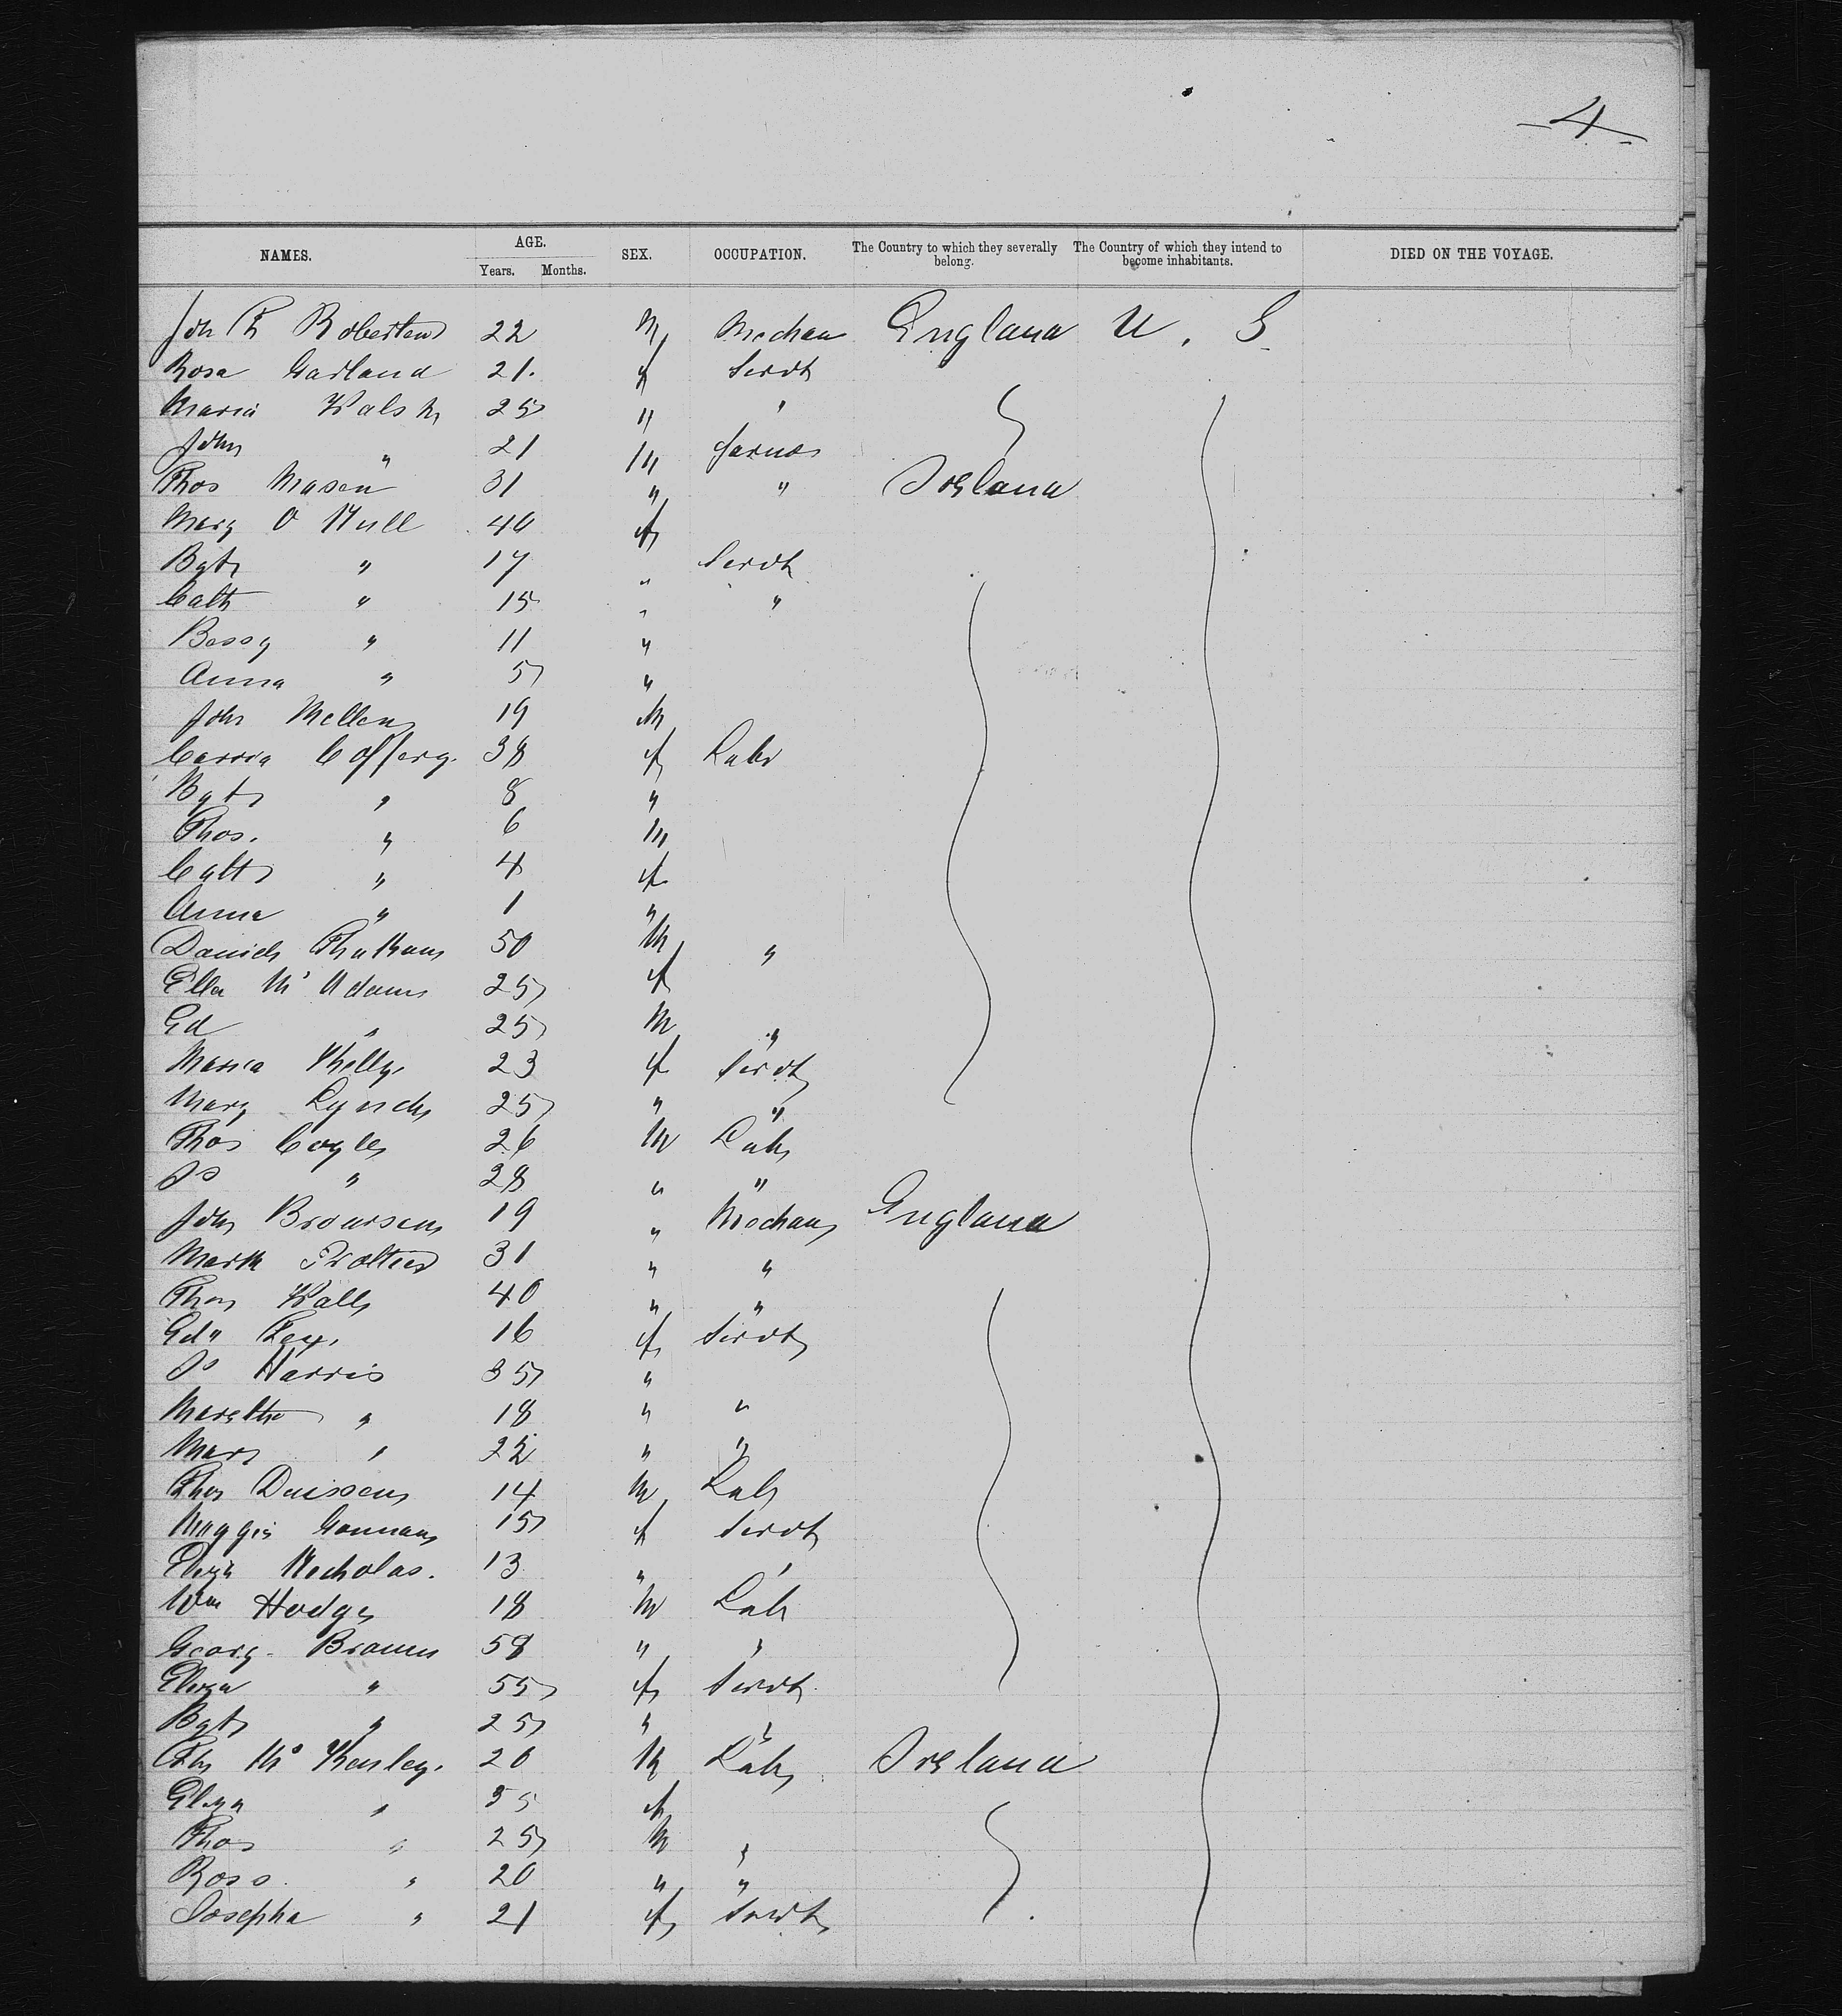 -4-
NAMES. AGE. Years. Months. SEX. OCCUPATION. The Country to which they severally belong. The Country of which they intend to become inhabitants. DIED ON THE VOYAGE.
Joh R Robertson 22 M Mechan England U. S.
Rosa Garland 21 f Servt
Maria Walsh 25 " "
John " 21 M farmer
Thos Mason 31 " " Ireland
Mary O 40 f
Bgt " 17 " Servt
Cath " 15 " "
Bessy " 11 "
Anna " 5 "
John Mellen 19 M
38 f Labr
Bgt " 8 "
Thos. " 6 M
Cath " 4 f
Anna " 1 "
Daniel 50 M "
Ella Mc Adams 25 f
Ed " 25 M "
Maria 23 f Servt
Mary Lynch 25 " "
Thos Coyle 26 M Labr
Js " 28 " "
John 19 " Mechan England
Mark 31 " "
Thos Walls 40 " "
16 f Servt
Js Harris 35 "
Martha " 18 " "
Mary " 22 " "
14 M Labr
Maggie 15 f Servt
Eliza Nicholas. 13 " "
Wm Hodge 18 M Labr
Georg. Brown 58 " "
Eliza " 55 f Servt
Bgt " 25 " "
Mc 20 M Labr Ireland
Eliza " 35 f
Thos " 25 M "
Ross " 20 " "
Josepha " 21 f Servt